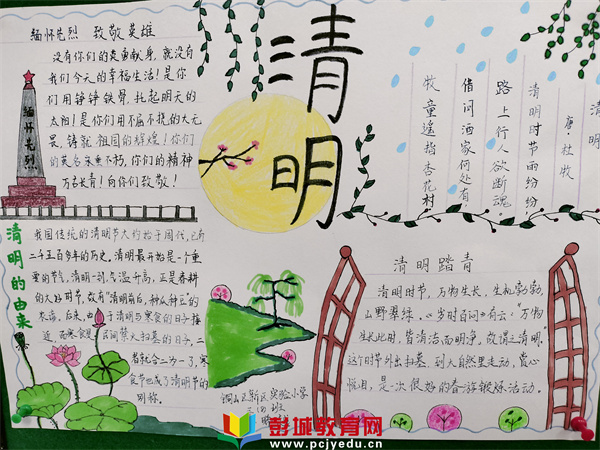 缅怀先烈 致敬英雄
没有你们的英勇献身,就没有
我们今天的幸福生活!是你
们用铮铮铁骨,扎起明天的
太阳!是你们用不屈不挠的大无
畏,铸就祖国的辉煌!你们
的英名永垂不朽,你们的精神
万古长青!向你们致敬!
缅怀先烈
清明
清明
唐 杜牧
清明时节雨纷纷
路上行人欲断魂。
借问酒家何处有
牧童遥指杏花村
清明的由来
我国传统的清明节大约始于周代,已有
二千五百多年的历史,清明最开始是一个重
要的节气,清明一到,气温升高,正是春耕
的大好时节,故有"清明前后,种瓜种豆"的
农谚。后来,由于清明与寒食的日子接
近,而寒食是民间禁火扫墓的日子,二
者就合二为一了,寒
食节也成了清明节的
别称。
清明踏青
清明时节,万物生长,生机勃勃,
山野翠绿,《岁时百问》有云:"万物
生长此时,皆清洁而明净,故谓之清明。"
这个时节外出扫墓,到大自然里走动,赏心
悦目,是一次很好的春游锻炼活动。
铜山区新区实验小学
彭城教育网
www.pcjyedu.cn